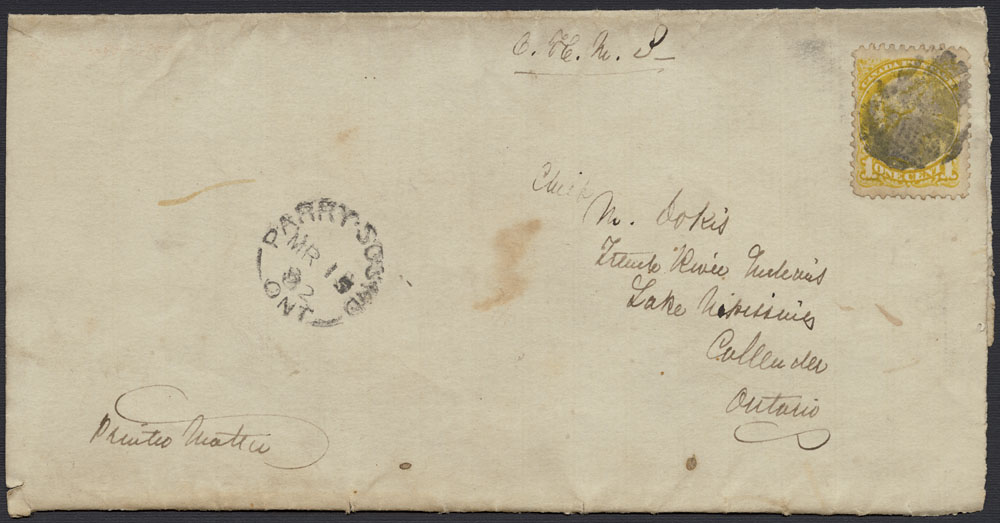 O. H. M. S
CANADA POSTAGE
1 ONE CENT 1
Chief
M. Dokis
French River Indians
Lake Nipissing
Callender
Ontario
PARRY-SOUND
MR 15
82
ONT
Printed Matter